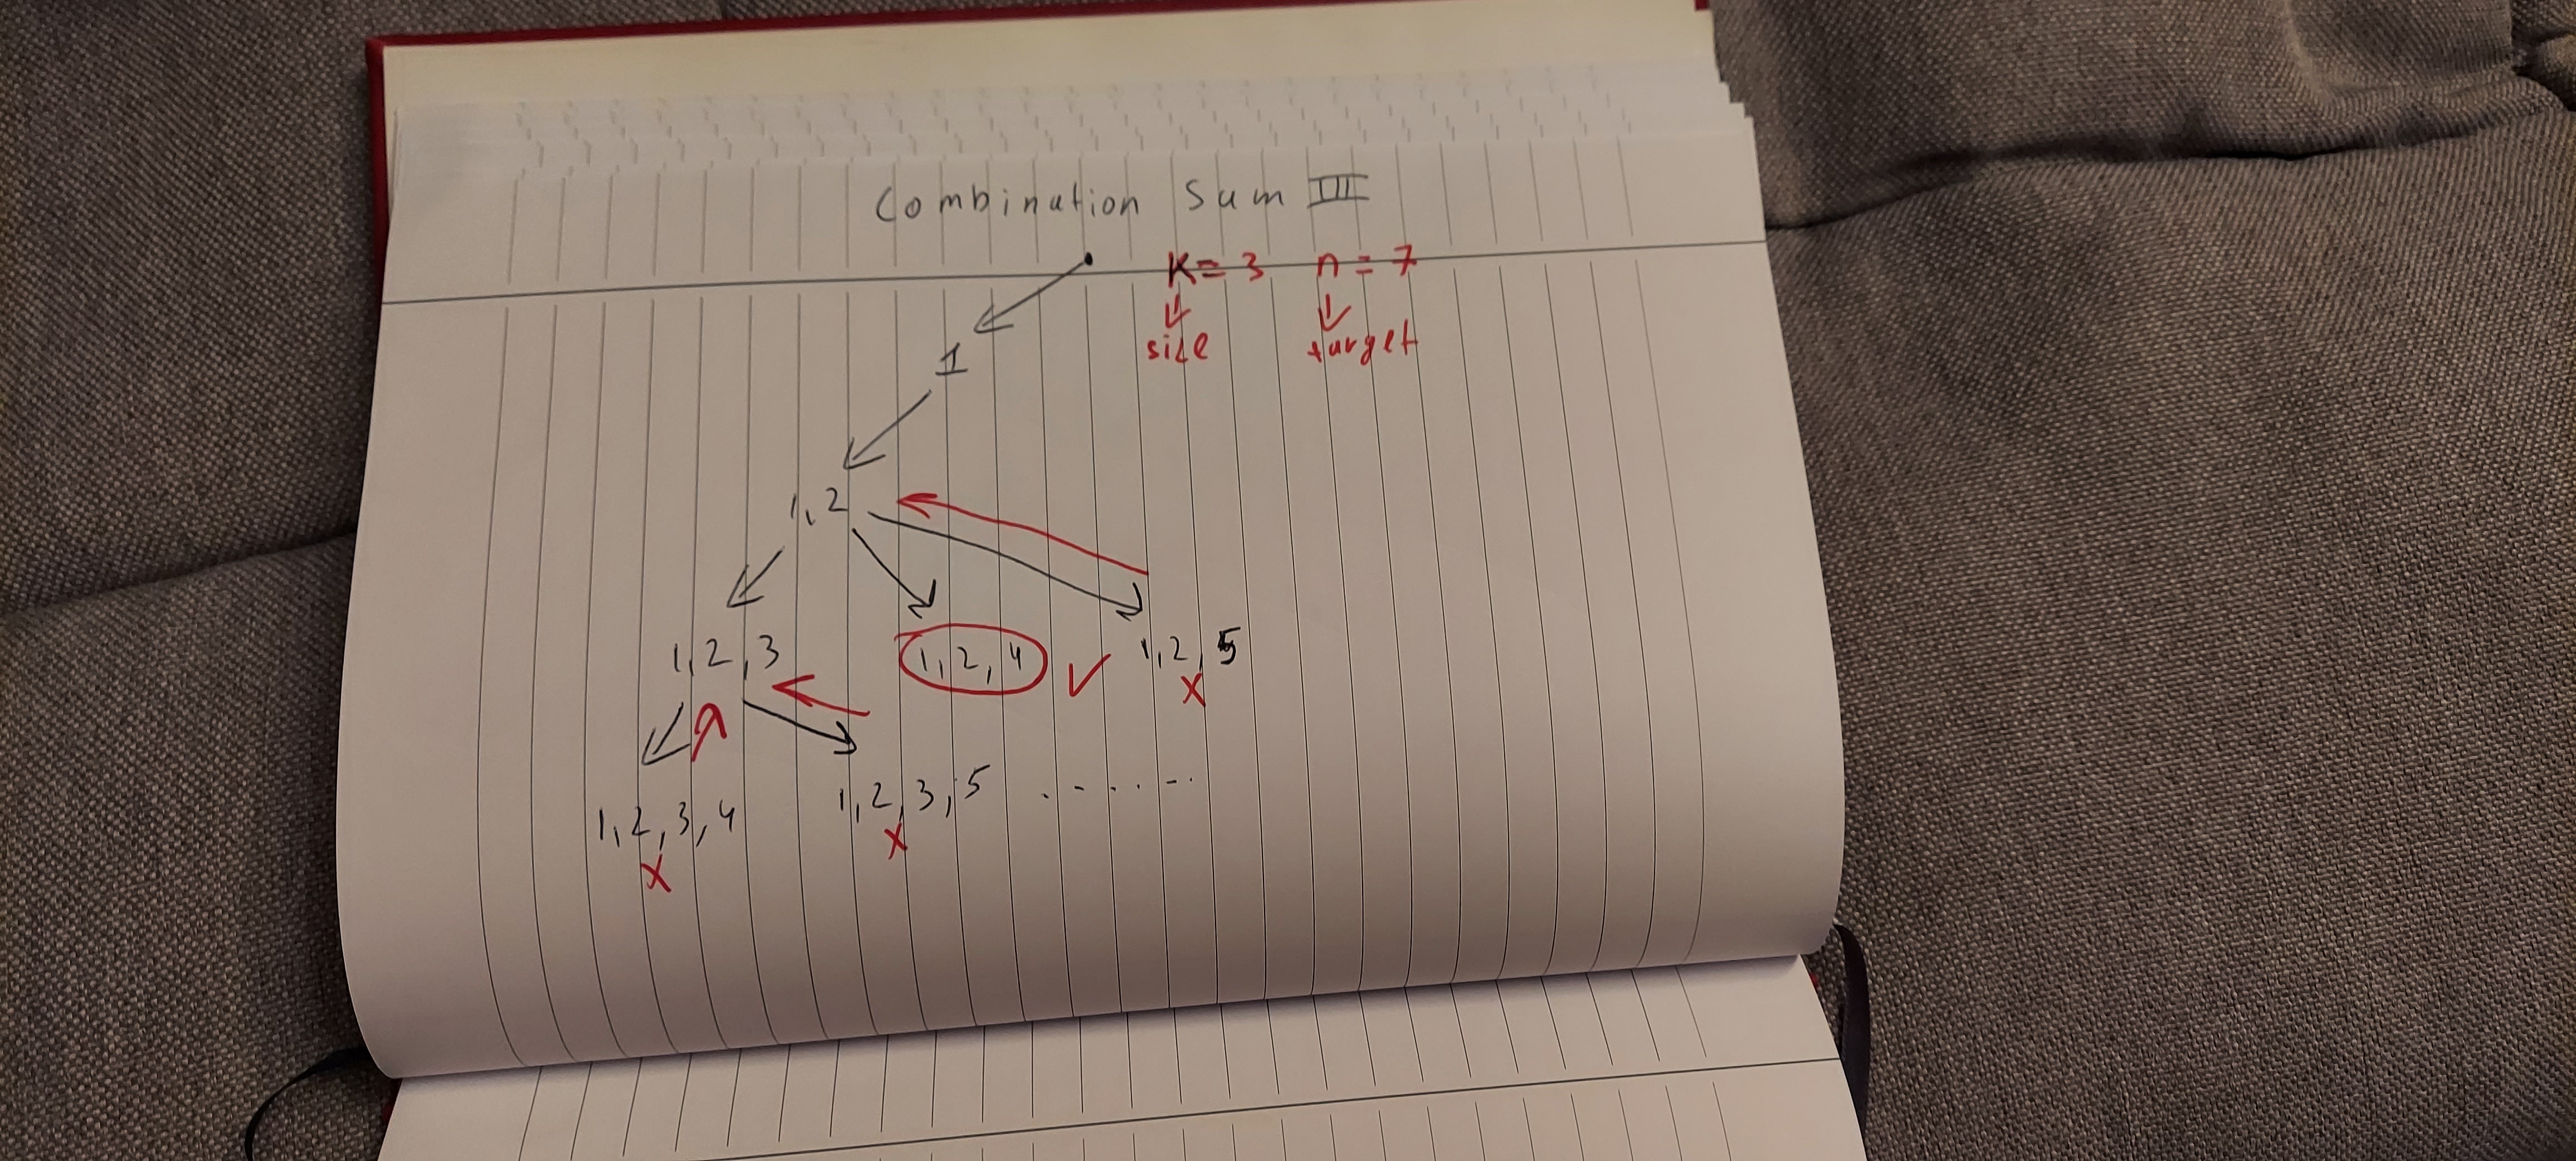 Combination Sum III
K = 3 n = 7
size target
1
1,2
1,2,3 1,2,4 1,2,5
1,2,3,4 1,2,3,5 .......